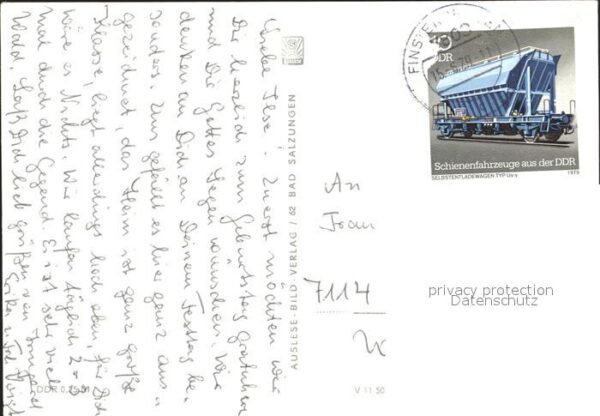 Liebe Ilse! Zuerst möchten wir
Dir herzlich zum Geburtstag gratulieren
und Dir Gottes Segen wünschen. Wir
denken an Dich an Deinem Festtag be-
sonders. Uns gefällt es hier ganz aus-
gezeichnet, das Heim ist ganz große
Klasse, liegt allerdings hoch oben, für Dich
wäre es Nichts. Wir laufen täglich 2
mal durch die Gegend. Es ist sehr viel
Wald. Laß Dich lieb grüßen von
Erika u.
DDR 0,25 M
AUSLESE-BILD-VERLAG / 62 BAD SALZUNGEN
V 11 50
FINSTER
10
DDR
Schienenfahrzeuge aus der DDR
SELBSTENTLADEWAGEN TYP Us-y
1979
An
Frau
7114
privacy protection
Datenschutz